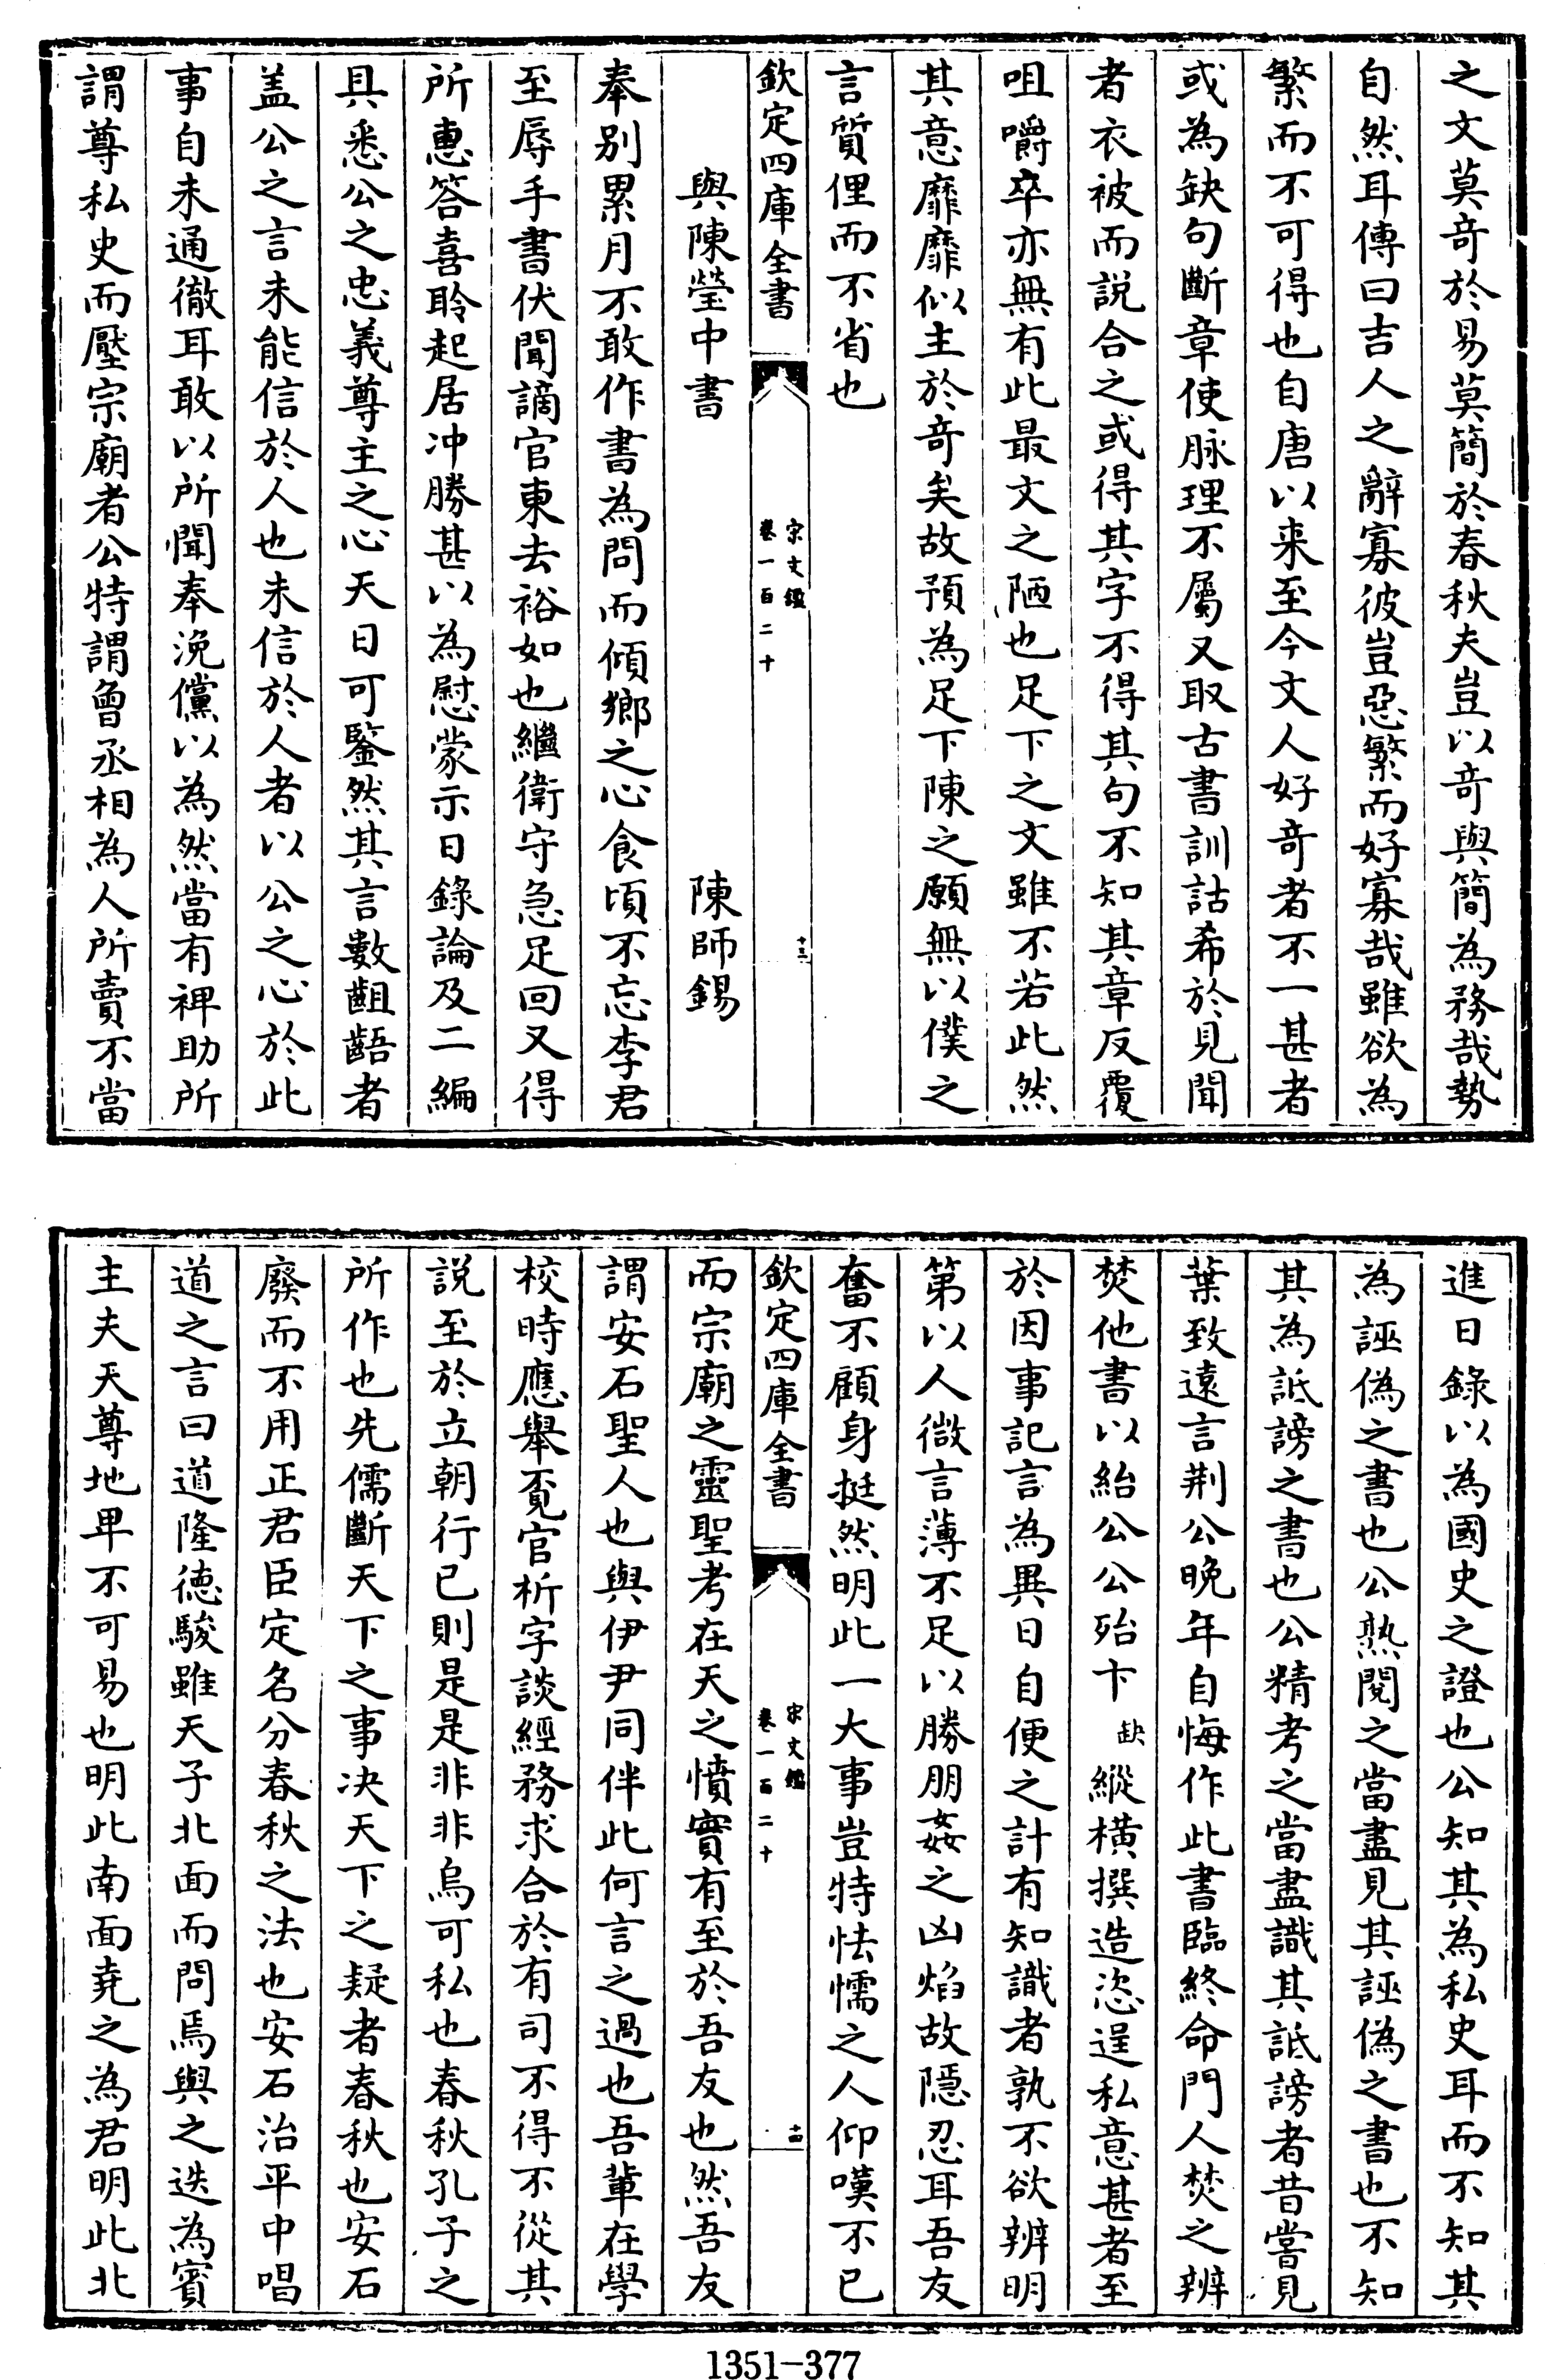 之文莫奇於易莫簡於春秋夫豈以奇與簡為務哉勢
自然耳傳曰吉人之辭寡彼豈惡繁而好寡哉雖欲為
繁而不可得也自唐以来至今文人好奇者不一甚者
或為缺句斷章使脉理不屬又取古書訓詁希於見聞
者衣被而説合之或得其字不得其句不知其章反覆
咀嚼卒亦無有此最文之陋也足下之文雖不若此然
其意靡靡似主於奇矣故預為足下陳之願無以僕之
言質俚而不省也
欽定四庫全書
宋文鑑
卷一百二十
十三
與陳瑩中書
陳師錫
奉别累月不敢作書為問而傾鄉之心食頃不忘李君
至辱手書伏聞謫官東去裕如也繼衛守急足回又得
所惠答喜聆起居冲勝甚以為慰蒙示日錄論及二編
具悉公之忠義尊主之心天日可鑒然其言數齟齬者
盖公之言未能信於人也未信於人者以公之心於此
事自未通徹耳敢以所聞奉浼儻以為然當有裨助所
謂尊私史而壓宗廟者公特謂曾丞相為人所賣不當
進日錄以為國史之證也公知其為私史耳而不知其
為誣偽之書也公熟閱之當盡見其誣偽之書也不知
其為詆謗之書也公精考之當盡識其詆謗者昔嘗見
葉致遠言荆公晚年自悔作此書臨終命門人焚之辨
焚他書以紿公公殆卞缺縱横撰造恣逞私意甚者至
於因事記言為異日自便之計有知識者孰不欲辨明
第以人微言薄不足以勝朋姦之凶焰故隱忍耳吾友
奮不顧身挺然明此一大事豈特怯懦之人仰嘆不已
欽定四庫全書
宋文鑑
卷一百二十
十四
而宗廟之靈聖考在天之憤實有至於吾友也然吾友
謂安石聖人也與伊尹同伴此何言之過也吾輩在學
校時應舉覔官析字談經務求合於有司不得不從其
説至於立朝行已則是是非非烏可私也春秋孔子之
所作也先儒斷天下之事决天下之疑者春秋也安石
廢而不用正君臣定名分春秋之法也安石治平中唱
道之言曰道隆德駿雖天子北面而問焉與之迭為賓
主夫天尊地卑不可易也明此南面堯之為君明此北
1351-377